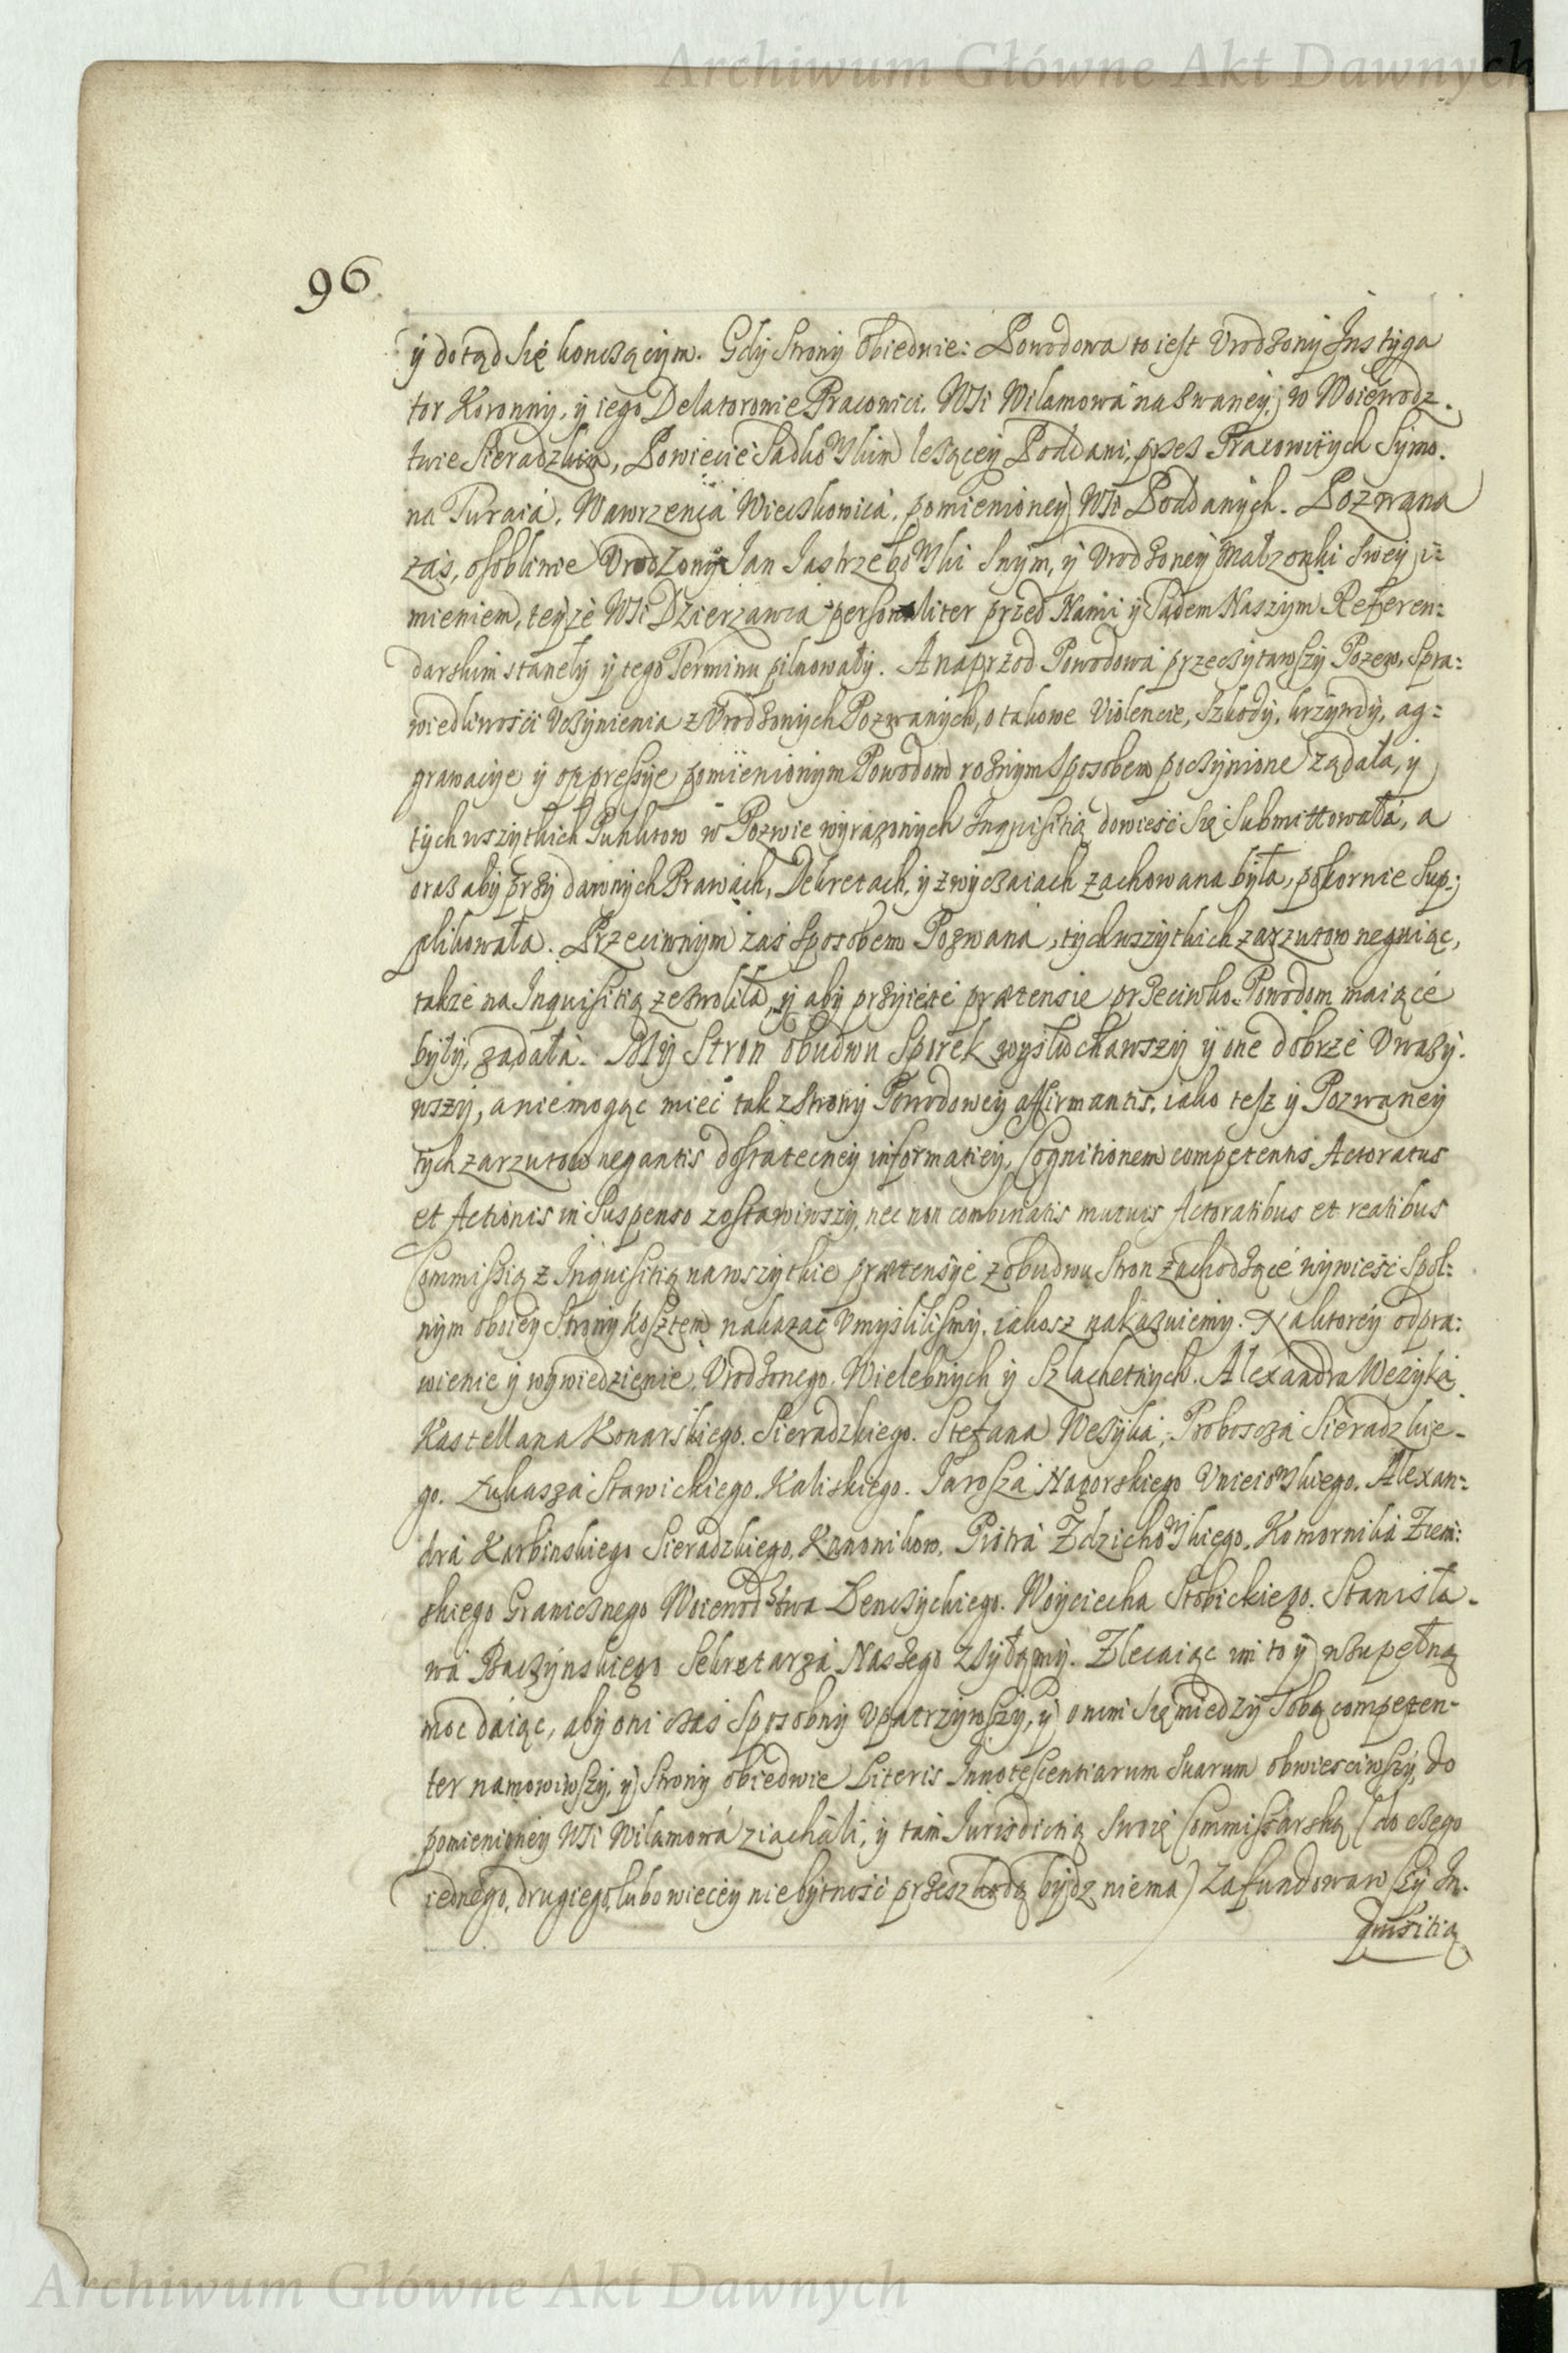 Archiwum Główne Akt Dawnych
96
y dotąd się konczącym. Gdy Strony obiedwie: Powodowa to iest Vrodzony Instyga
tor Koronny, y iego Delatorowie Pracowici. WSi Wilamowa nazwaney, w Woiewodz-
twie Sieradzkim, Powiecie Sadkowskim lezącey Poddani, przez Pracowitych Symo-
na Turaia, Wawrzenca Wieczkowica, pomienioney WSi Poddanych. Pozwana
zas, osobliwie Vrodzony Jan Jastrzębowski Swym, y Vrodzoney Małzonki swey i-
mieniem, teyze WSi Dzierzawca personaliter przed Nami y Sądem Naszym Referen-
darskim stanęły y tego Terminu pilnowały. A naprzod Powodowa przeczytawszy Pozew, Spra-
wiedliwosci Vczynienia z Vrodzonych Pozwanych, o takowe Violencie, Szkody, krzywdy, ag-
grawacye y oppressye pomienionym Powodom roznym sposobem poczynione ządała, y
tych wszytkich Punktow w Pozwie wyrazonych Inquisitią dowiesc się Submittowała, a
oraz aby przy dawnych Prawach, Dekretach, y zwyczaiach zachowana była, pokornie Sup-
plikowała. Przeciwnym zas sposobem Pozwana, tych wszytkich zarzutow neguiąc,
takze na Inquisitią zezwoliła, y aby przyięte prætensie przeciwko Powodom maiące
były, ządała. My Stron obudwu Sporek wysłuchawszy y one dobrze Vwazy-
wszy, a niemogąc miec tak z Strony Powodowey affirmantis, iako tesz y Pozwaney
tych zarzutow negantis dostateczney informatiey, Cognitionem competentis Actoratus
et Actionis in Suspenso zostawiwszy, nec non combinatis mutuis Actoratibus et reatibus
Commissią z Inquisitią na wszytkie prætensye z obudwu Stron zachodzące wywiesc Spol-
nym oboiey Strony Kosztem nakazac Vmyslilismy, iakosz nakazuiemy. Na ktorey odpra-
wienie y wywiedzienie, Vrodzonego, Wielebnych y Szlachetnych. Alexandra Wezyka
Kasztellana Konarskiego. Sieradzkiego. Stefana Wezyka, Proboszcza Sieradzkie-
go. Łukasza Stawickiego. Kaliskiego. Jarosza Nagorskiego Vnieiowskiego. Alexan-
dra Karbinskiego Sieradzkiego, Kanonikow, Piotra Zdzichowskiego, Komornika Ziem-
skiego Granicznego Woiewodztwa Lenczyckiego. Woyciecha Stobickiego. Stanisła-
wa Baczynskiego Sekretarza Naszego zsyłamy. Zlecaiąc im to y wzupełną
moc daiąc, aby oni czas sposobny Vpatrzywszy, y onim się miedzy Sobą competen-
ter namowiwszy, y Strony obiedwie Literis Innotescentiarum Suarum obwiesciwszy, do
pomienioney WSi Wilamowa ziachali, y tam Jurisdictią Swoię Commissarską (do czego
iednego, drugiego, lubo wiecey niebytnosc przeszkodą bydz niema) zafundowawszy In-
quisitią
Archiwum Główne Akt Dawnych